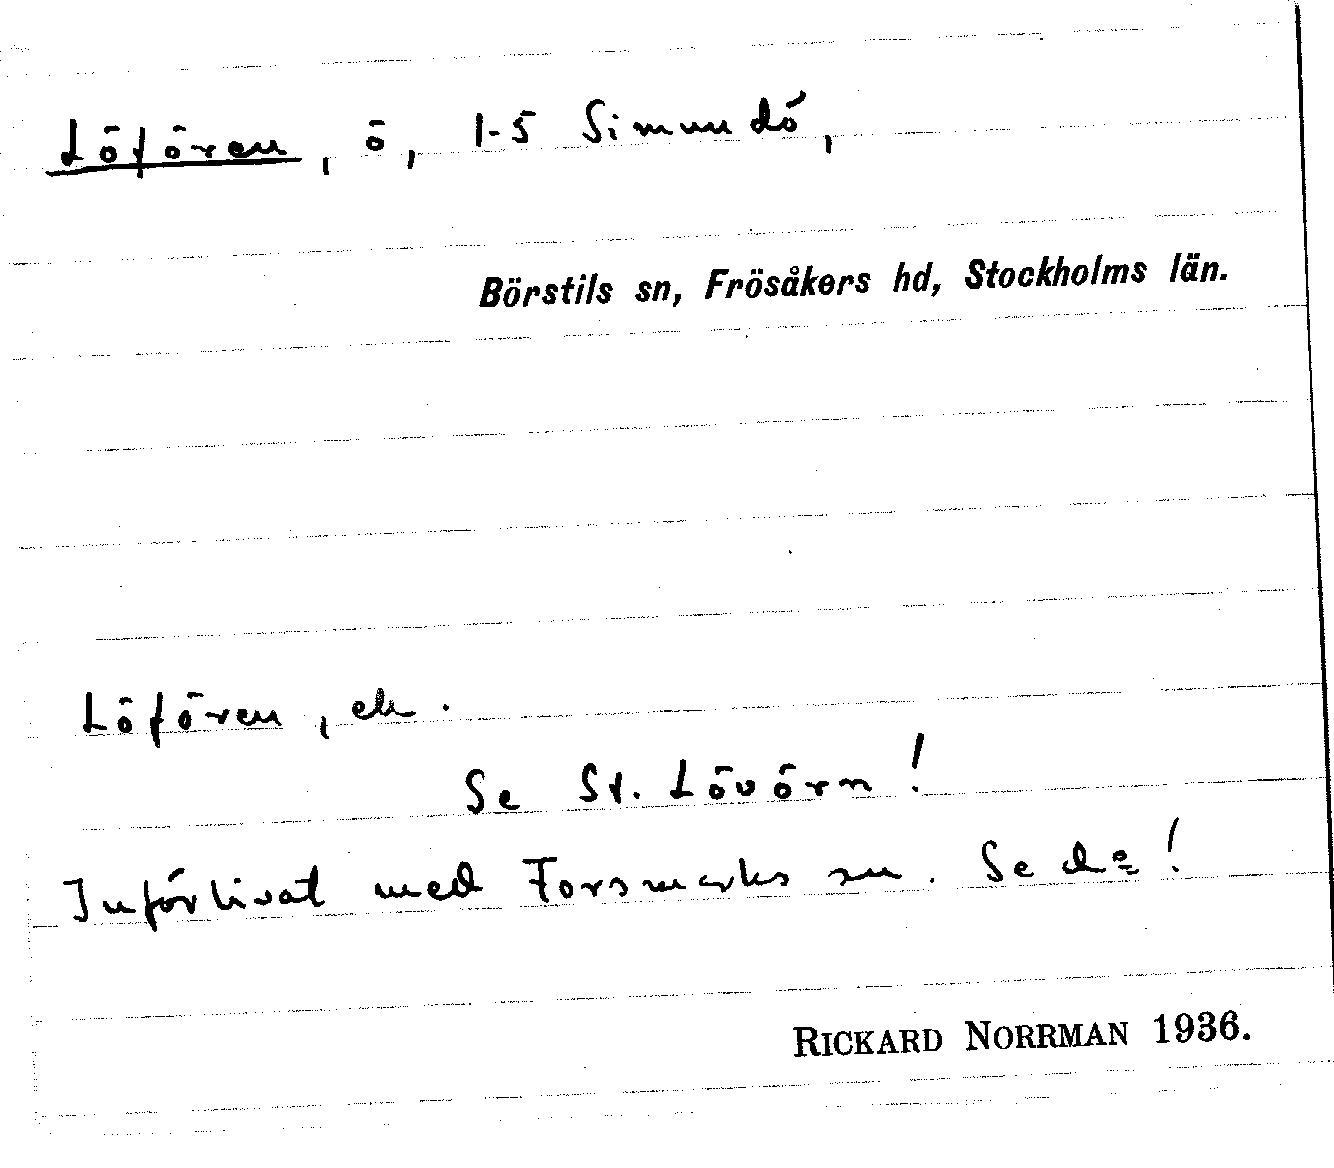 Löfören, ö, 1-5 Simundö,
Börstils sn, Frösåkers hd, Stockholms län.
Löfören, ek.
Se St. Lövörn!
Införlivat med Forsmarks sn. Se do!
RICKARD NORRMAN 1936.